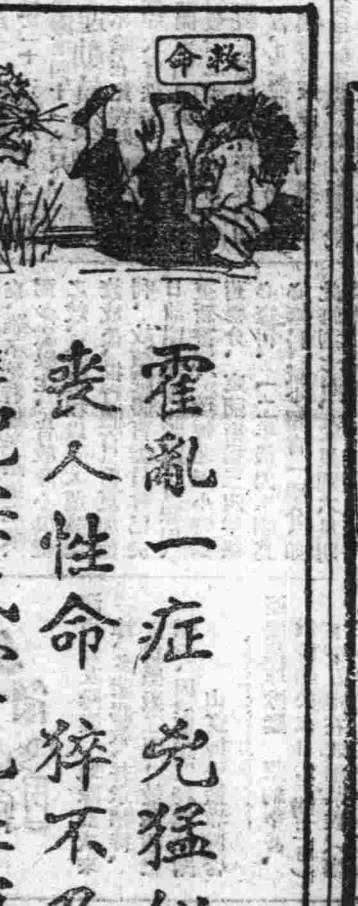 救命
霍亂一症 兇猛
喪人性命 猝不